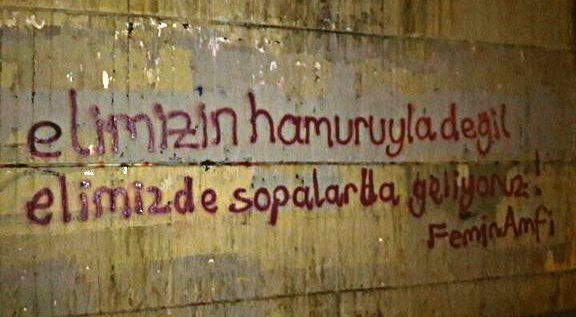 elimizin hamuruyla değil
elimizde sopalarlla geliyoruz!
FeminAmfi